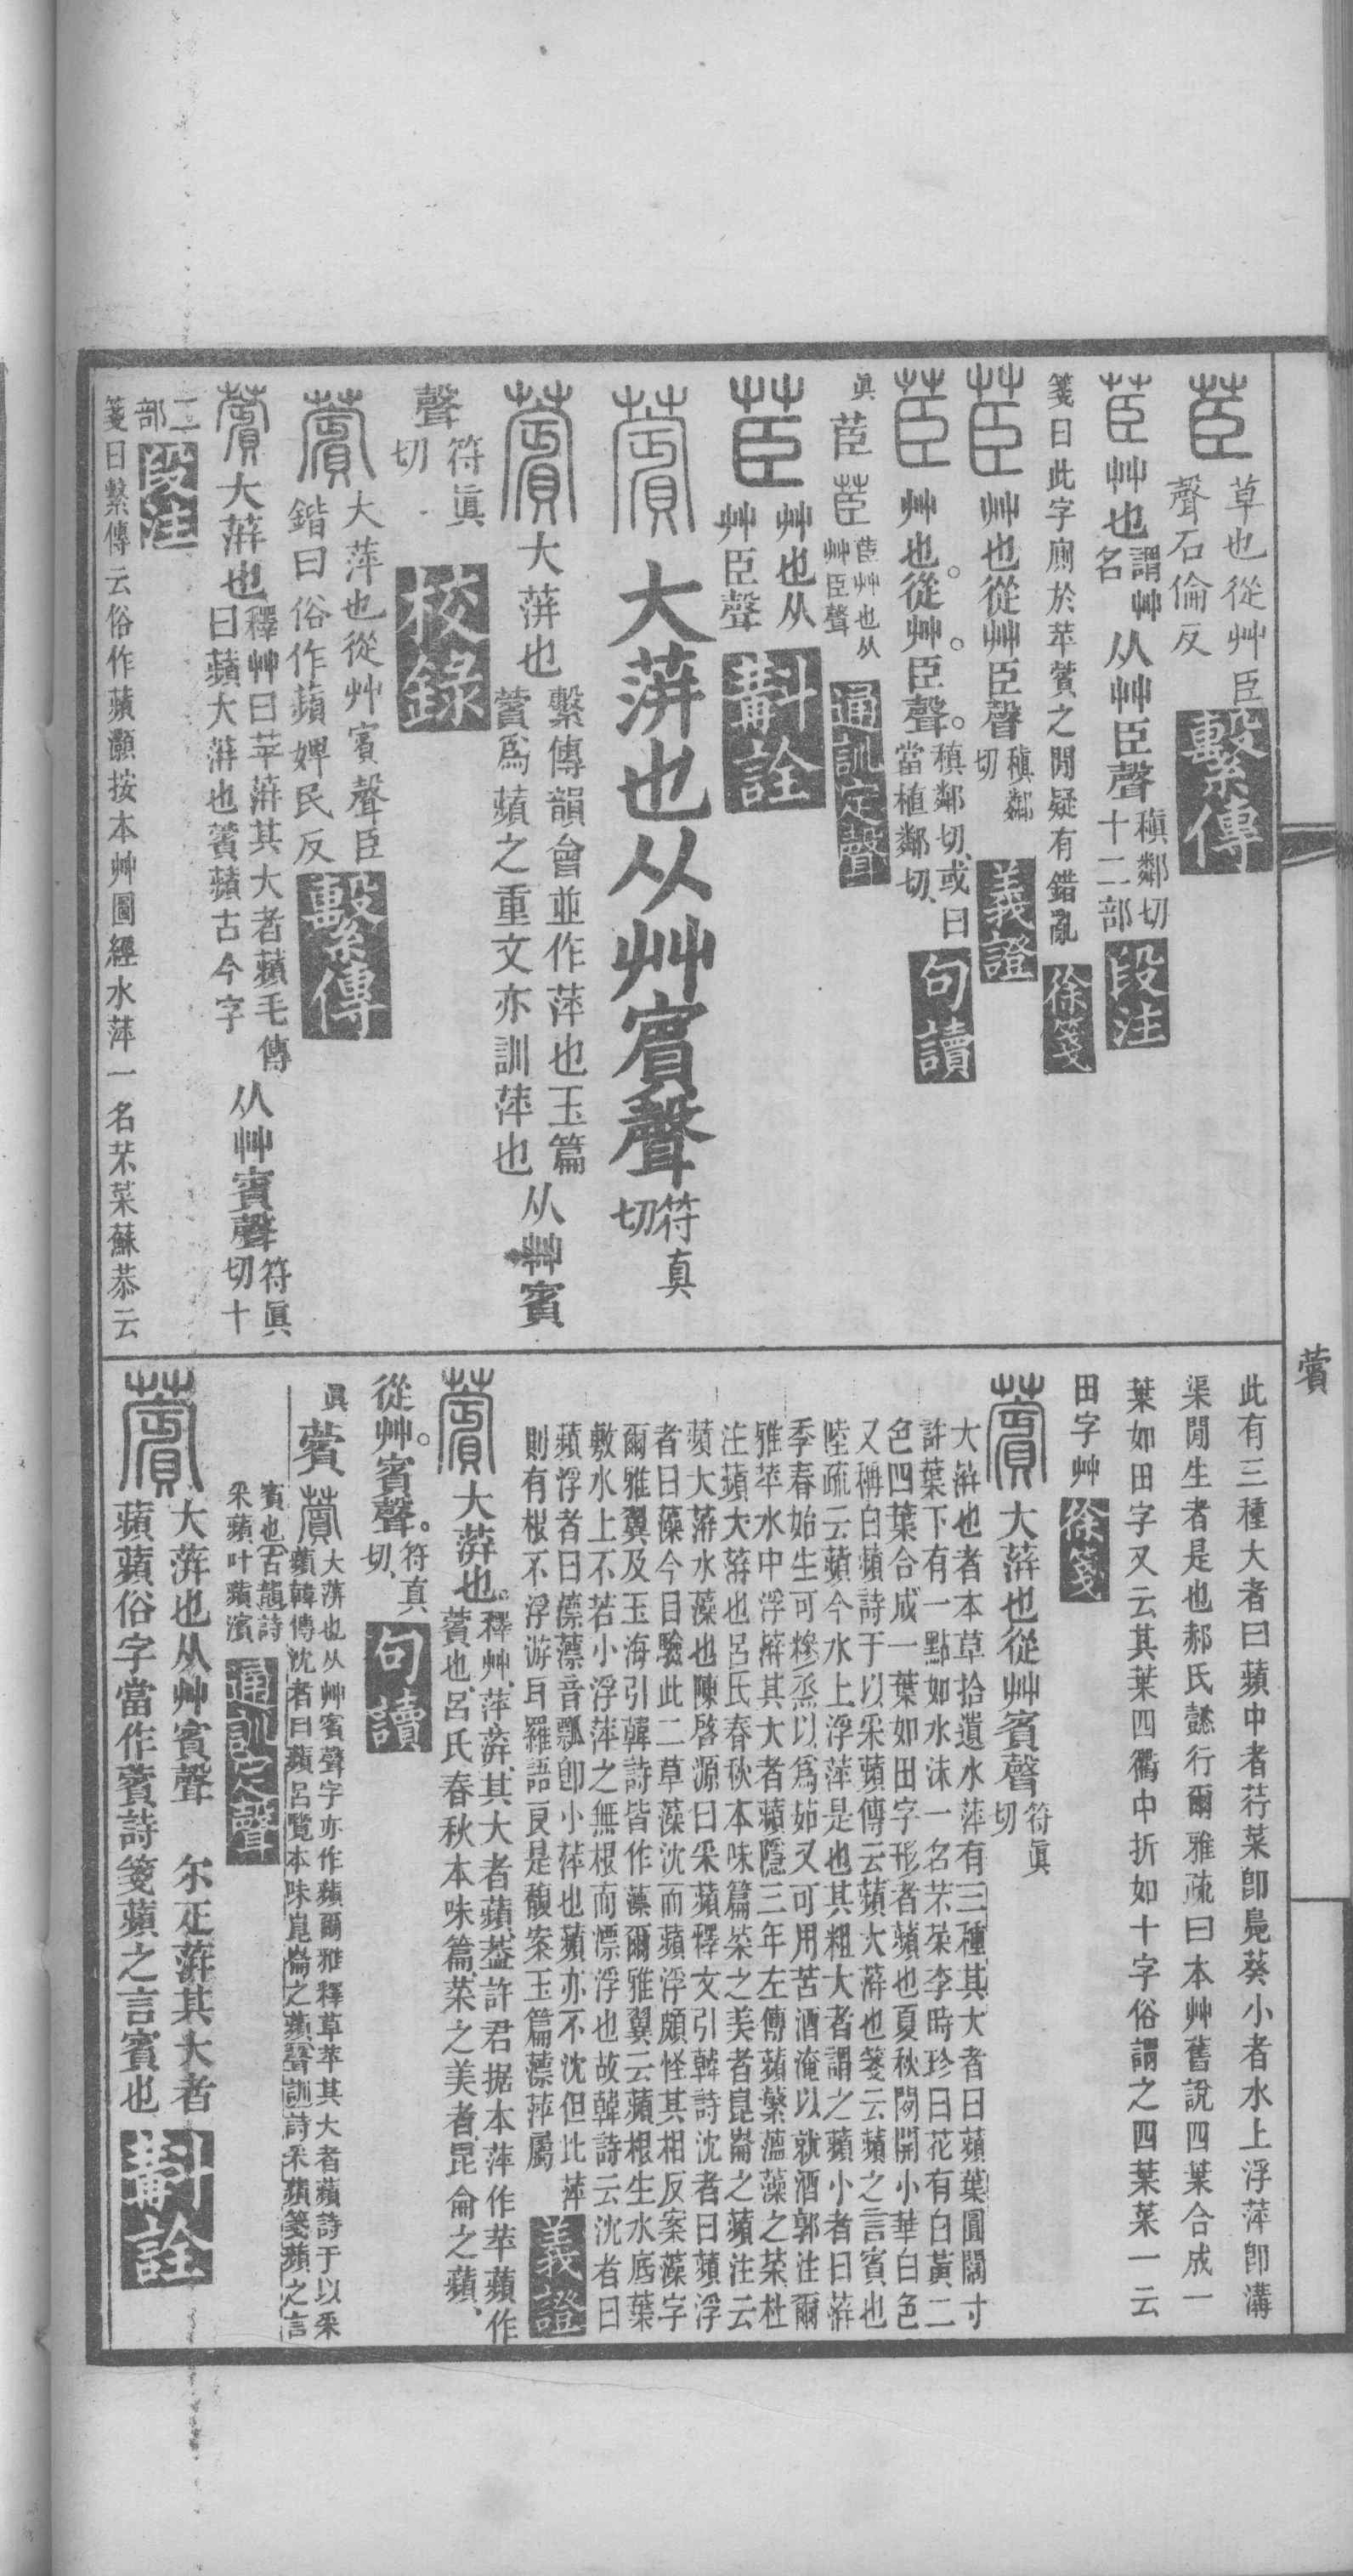 茞
草也從艸臣
聲石倫反
繫傳
茞艸也
謂艸
名
从艸臣聲
稹鄰切
十二部
段注
箋曰此字廁於苹薲之閒疑有錯亂
徐箋
茞艸也從艸臣聲
稹鄰
切
義證
茞艸也。從艸。臣聲。
稹鄰切、或曰
當植鄰切、
句讀
眞
茞
茞
茞艸也从
艸臣聲
通訓定聲
茞
艸也从
艸臣聲
斠詮
薲
大蓱也从艸賓聲
符真
切
薲大蓱也
繫傳韻會並作萍也玉篇
薲爲蘋之重文亦訓萍也
从艸賓
聲
符眞
切
校錄
薲
大萍也從艸賓聲臣
鍇曰俗作蘋婢民反
繫傳
薲大蓱也
釋艸曰苹蓱其大者蘋毛傳
曰蘋大蓱也薲蘋古今字
从艸賓聲
符眞
切十
二
部
段注
箋曰繫傳云俗作蘋灝按本艸圖經水萍一名苤菜蘇恭云
薲
此有三種大者曰蘋中者荇菜卽鳧葵小者水上浮萍卽溝
渠閒生者是也郝氏懿行爾雅疏曰本艸舊說四葉合成一
葉如田字又云其葉四衢中折如十字俗謂之四葉菜一云
田字艸
徐箋
薲大蓱也從艸賓聲
符眞
切
大蓱也者本草拾遺水萍有三種其大者曰蘋葉圓闊寸
許葉下有一點如水沫一名苤菜李時珍曰花有白黃二
色四葉合成一葉如田字形者蘋也夏秋閒開小華白色
又稱白蘋詩于以采蘋傳云蘋大蓱也箋云蘋之言賓也
陸疏云蘋今水上浮萍是也其粗大者謂之蘋小者曰蓱
季春始生可糝烝以爲茹又可用苦酒淹以就酒郭注爾
雅苹水中浮蓱其大者蘋隱三年左傳蘋蘩薀藻之菜杜
注蘋大蓱也呂氏春秋本味篇菜之美者崑崙之蘋注云
蘋大蓱水藻也陳啓源曰采蘋釋文引韓詩沈者曰蘋浮
者曰藻今目驗此二草藻沈而蘋浮頗怪其相反案藻字
爾雅翼及玉海引韓詩皆作薸爾雅翼云蘋根生水底葉
敷水上不若小浮萍之無根而漂浮也故韓詩云沈者曰
蘋浮者曰薸薸音瓢卽小萍也蘋亦不沈但比萍
則有根不浮游耳羅語良是馥案玉篇薸萍屬
義證
薲大蓱也。
釋艸、萍、蓱、其大者蘋、葢許君据本萍作苹蘋作
薲也、呂氏春秋本味篇、菜之美者、昆侖之蘋、
從艸。賓聲。
符真
切、
句讀
眞
薲
薲
大蓱也从艸賓聲字亦作蘋爾雅釋草苹其大者蘋詩于以采
蘋韓傳沈者曰蘋呂覽本味崑崙之蘋〔聲訓〕詩采蘋箋蘋之言
賓也〔古韻〕詩
采蘋叶蘋濱
通訓定聲
薲
大蓱也从艸賓聲 尔疋蓱其大者
蘋蘋俗字當作薲詩箋蘋之言賓也
斠詮